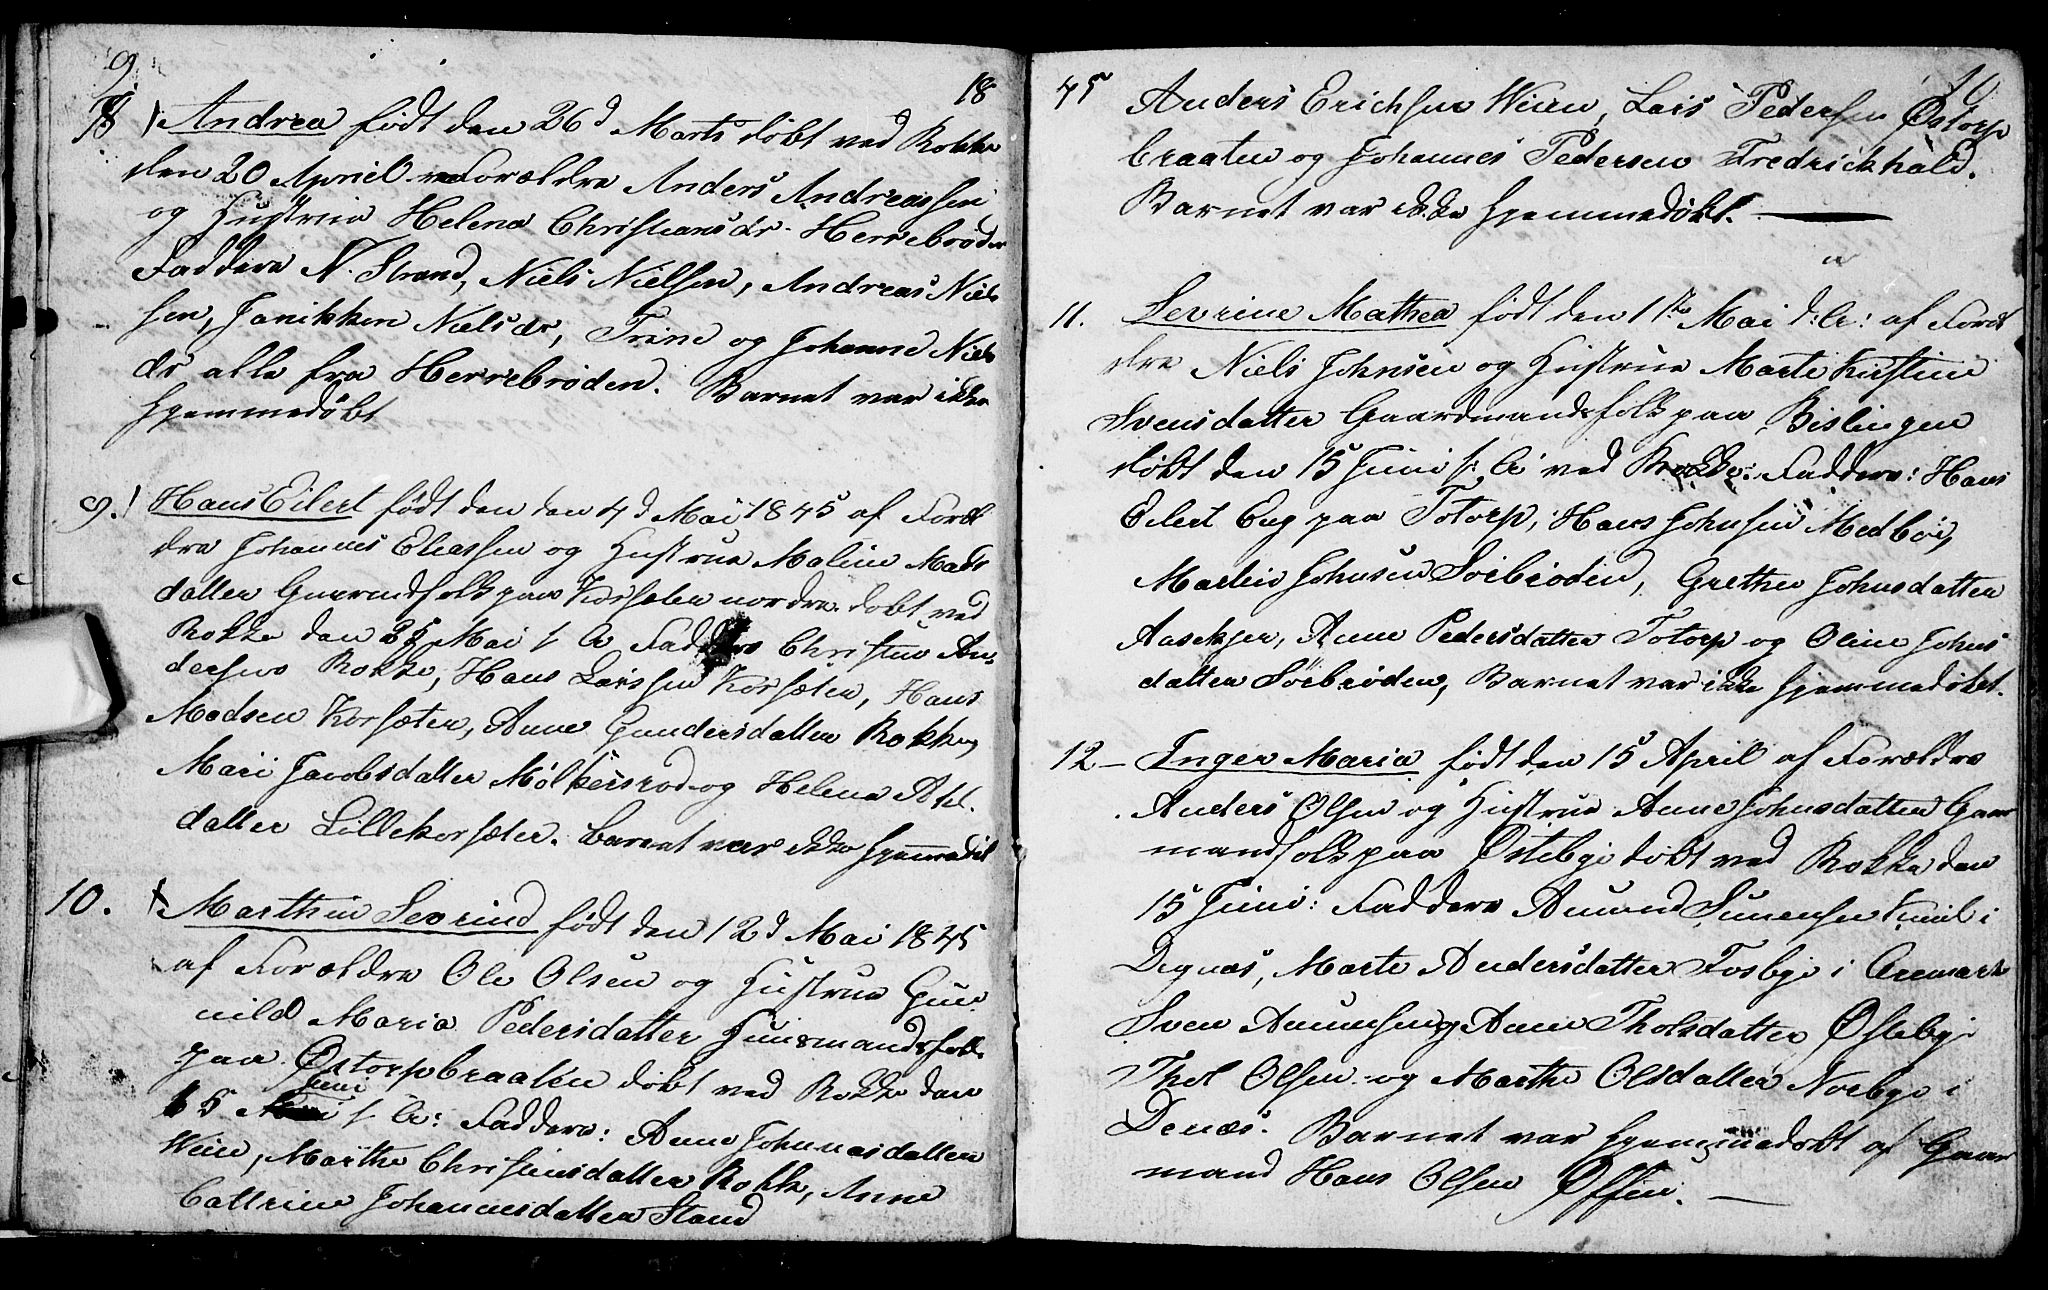 9
18
8 Andrea født den 26d Marts døbt ved Rokke
den 20 April Forældre Anders Andreassen
og Hustrue Helene Christiansdr Herrebrøden
Faddere N. Strand, Niels Nielsen, Andreas Niel
sen, Janikken Nielsdr, Trine og Johanne Niels
dr alle fra Herrebrøden. Barnet var ikke
hjemmedøbt
9. Hans Eilert født den den 4d Mai 1845 af Foræl
dre Johannes Eliassen og Hustrue Maline Mads
datter Gaarmdfolk paa Korsæter nordre døbt ved
Rokke den 25 Mai s. A Faddere Christen An
dersens Rokke, Hans Larssen Korsæter, Hans
Madsen Korsæter, Anne Gundersdatter Rokke,
Mari Jacobsdatter Mølkersrød og Helene Axel
datter Lillekorsæter. barnet var ikke hjemmedøbt
10. Marthin Sevrind født den 12d Mai 1845
af Forældre Ole Olsen og Hustrue Gun
nild Maria Pedersdatter Huusmandsfolk
paa Østorpbraaten døbt ved Rokke den
Juni
15 s. A: Faddere: Anne Johannesdatter
Weien, Marthe Christensdatter Rokke, Anne
Cattrine Johannesdatter Stand
45
Anders Erichsen Weien, Lars Pedersen Østorp
braaten og Johannes Pedersen Fredrickhald.
Barnet var ikke hjemmedøbt.
11. Sevrine Mathea født den 1ste Mai d: A: af Foræl
dre Niels Johnsen og Hustrue Marte Kirstine
Svensdatter Gaardmandsfolk paa Bislingen
døbt den 15 Juni s: A: ved Rokke: Faddere: Hans
Eilert Eng paa Totorp, Hans Johnsen Medbøe,
Martin Johnsen Sørbrøden, Grethe Johnsdatter
Aasekjer, Anne Pedersdatter Totorp og Oline Johns
datter Sørbrøden, Barnet var ikke hjemmedøbt.
12 Inger Maria født den 15 April af Forældre
Anders Olsen og Hustrue Anne Johnsdatter Gaar
mandfolk paa Østebye døbt ved Rokke den
15 Juni: Faddere Amund Simensen i
Degnæs, Marte Andersdatter Fosbye i Aremark
Sven Amunsen, Anne Tholsdatter Østebye
Thol Olsen og Marthe Olsdatter Norbye i
Denæs. Barnet var hjemmedøbt af Gaar
mand Hans Olsen